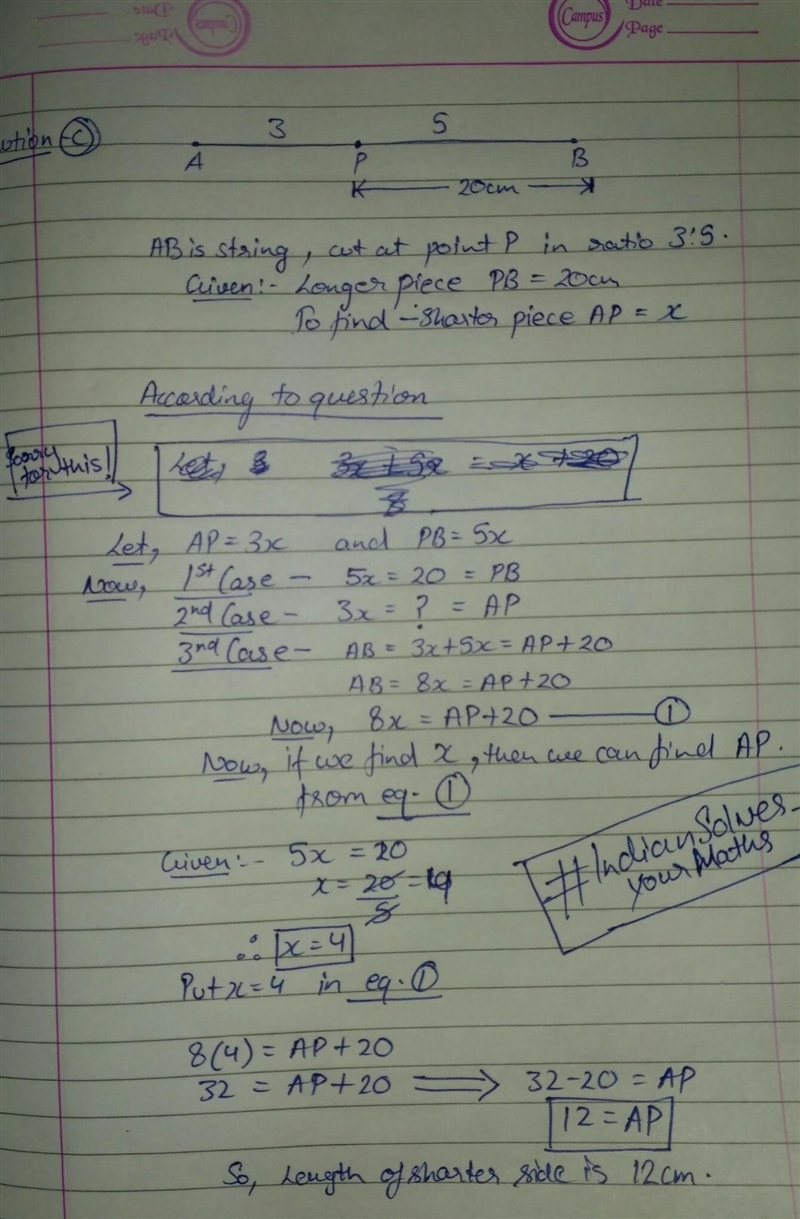 Campus
Date
Page
ution - C
3 5
A P B
20cm
AB is string, cut at point P in ratio 3:5.
Given:- Longer piece PB = 20cm
To find - Sharter piece AP = x
According to question
Sorry for this!
Let, 3 3x + 5x = x + 20
8
Let, AP = 3x and PB = 5x
Now, 1st Case - 5x = 20 = PB
2nd Case - 3x = ? = AP
3nd Case - AB = 3x+5x = AP+20
AB = 8x = AP+20
Now, 8x = AP+20 — ①
Now, if we find x, then we can find AP.
from eq. ①
Given:- 5x = 20
x = 20/5 = 4
∴ x = 4
#IndianSolves-
your Maths
Put x=4 in eq. ①
8(4) = AP + 20
32 = AP + 20 ⟹ 32-20 = AP
12 = AP
So, Length of sharter side is 12cm.